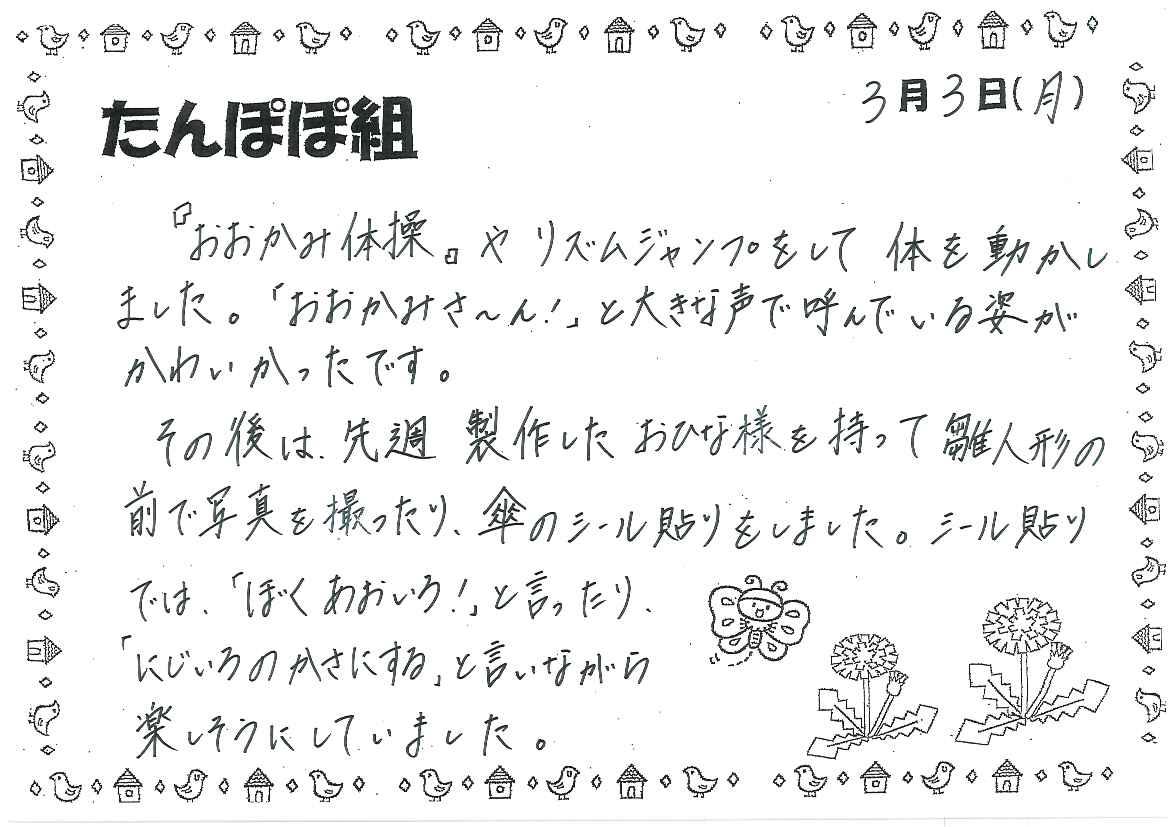 たんぽぽ組
3月3日(月)
『おおかみ体操』やリズムジャンプをして体を動かし
ました。「おおかみさ〜ん!」と大きな声で呼んでいる姿が
かわいかったです。
その後は、先週製作したおひな様を持って雛人形の
前で写真を撮ったり、傘のシール貼りをしました。シール貼り
では、「ぼくあおいろ!」と言ったり、
「にじいろのかさにする」と言いながら
楽しそうにしていました。